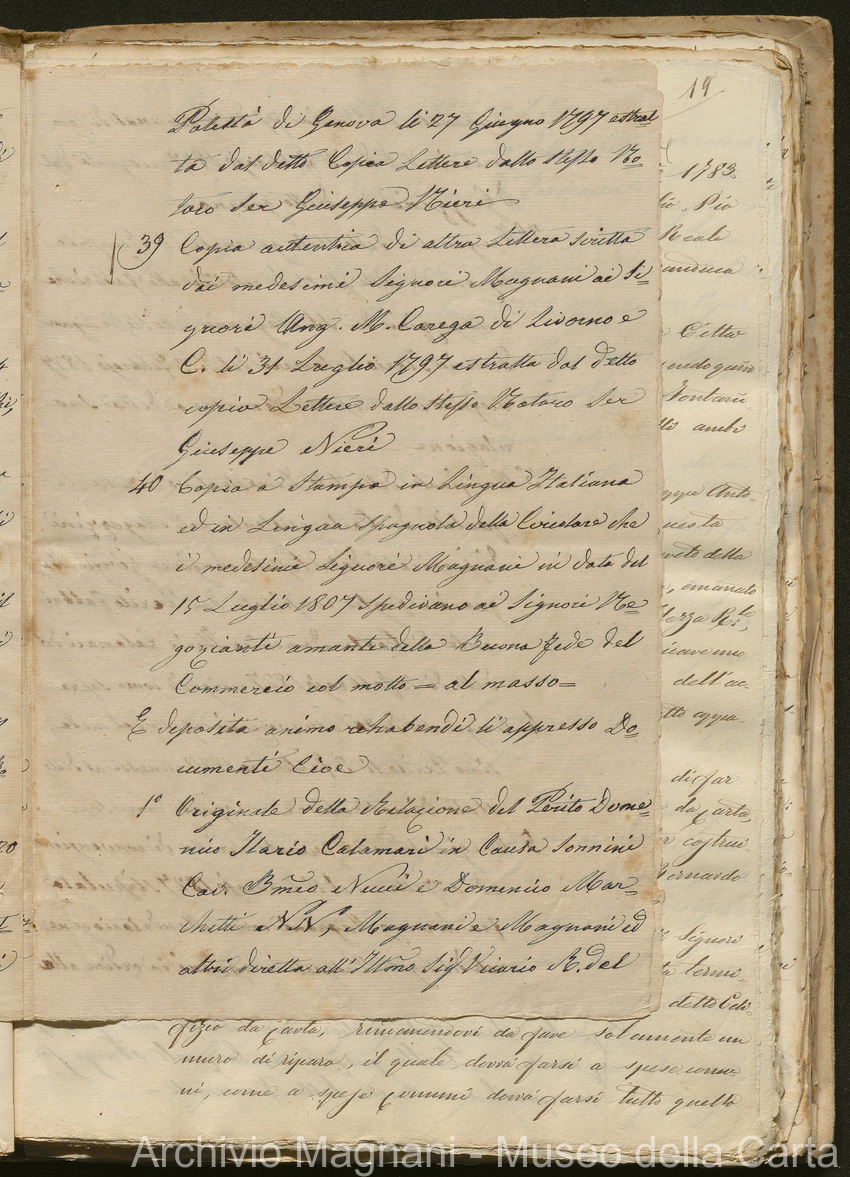 Paletta di Genova li 27 Giugno 1797 estrat
ta dal detto Copia Lettere dallo stesso No=
taro Ser Giuseppe Nieri
39 Copia autentica di altra Lettera scritta
dai medesimi Signori Magnani ai Si=
gnori Ang. M. Carega di Livorno e
C. li 31 Luglio 1797 estratta dal detto
copia Lettere dallo stesso Notaro Ser
Giuseppe Nieri
40 Copia a Stampa in Lingua Italiana
ed in Lingua Spagnola della Circolare che
i medesimi Signori Magnani in data del
15 Luglio 1807 spedivano ai Signori Ne=
gozianti amanti della Buona fede del
Commercio col motto = al masso =
E deposita animo rehabendi li appresso Do=
cumenti Cioè
1° Originale della Relazione del Perito Dome=
nico Ilario Calamari in Causa Sonnini
Cav. Bmeo Nucci e Domenico Mar=
chetti NN, Magnani e Magnani ed
altri diretta all' Illmo Sigr Vicario R. del
19
1783
Pio
Reale
Città
Fontani
ambi
Anto=
della
, emanato
dell'ac=
di far
da Carta,
costrui=
Bernardo
Signori
detto Edi=
fizio da Carta, rimanendovi da fare solamente un
muro di riparo, il quale dovrà farsi a spese comu=
ni, come a spese comuni dovrà farsi tutto quello
Archivio Magnani - Museo della Carta